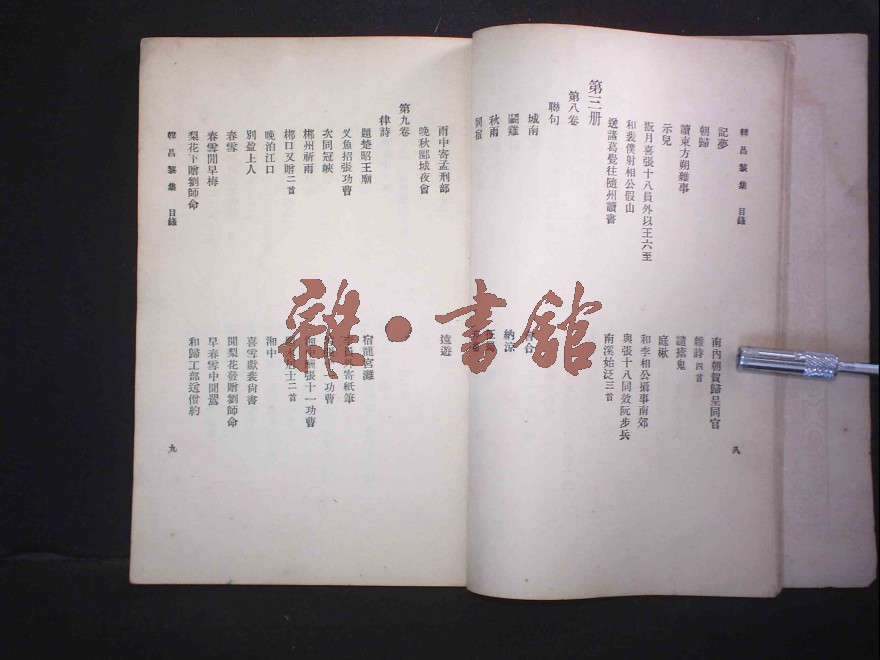 韓昌黎集 目錄
記夢
朝歸
讀東方朔雜事
示兒
翫月喜張十八員外以王六至
和裴僕射相公假山
送諸葛覺往隨州讀書
南內朝賀歸呈同官
雜詩四首
譴瘧鬼
庭楸
和李相公攝事南郊
與張十八同效阮步兵
南溪始泛三首
第三册
第八卷
聯句
城南
鬬雞
秋雨
同宿
會合
納涼
八
雨中寄孟刑部
晚秋郾城夜會
遠遊
第九卷
律詩
題楚昭王廟
叉魚招張功曹
次同冠峽
郴州祈雨
郴口又贈二首
晚泊江口
別盈上人
春雪
春雪間早梅
梨花下贈劉師命
宿龍宮灘
寄紙筆
功曹
張十一功曹
居士二首
湘中
喜雪獻裴尚書
聞梨花發贈劉師命
早春雪中聞鶯
和歸工部送僧約
韓昌黎集 目錄
九
雜·書館